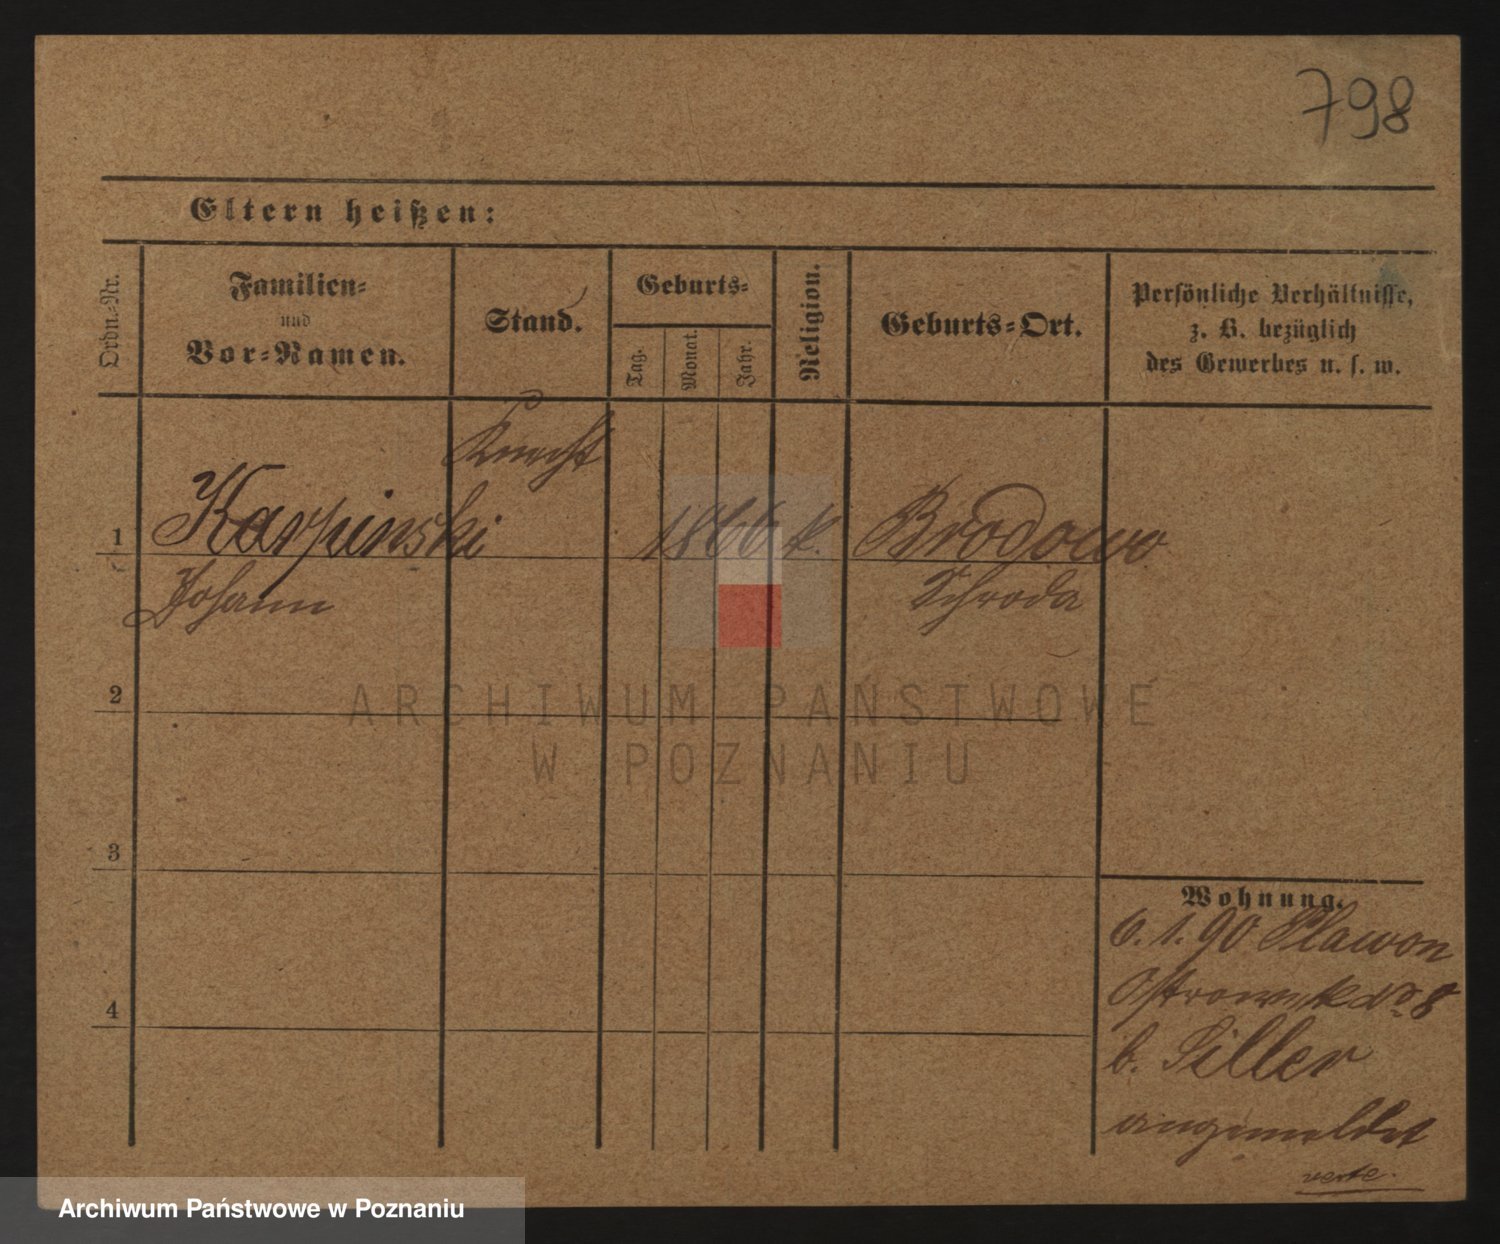 798
Eltern heißen:
Ordn.-Nr.
Familien-
und
Vor-Namen.
Stand.
Geburts-
Tag.
Monat.
Jahr.
Religion.
Geburts-Ort.
Persönliche Verhältnisse,
z. B. bezüglich
des Gewerbes u. s. w.
Knecht
1 Karpinski 1866 k. Brodowo
Johann Schroda
2
ARCHIWUM PAŃSTWOWE
W POZNANIU
3
Wohnung.
6. 1. 90 Plawon
4
No 8
b. Siller
angemeldet
verte.
Archiwum Państwowe w Poznaniu